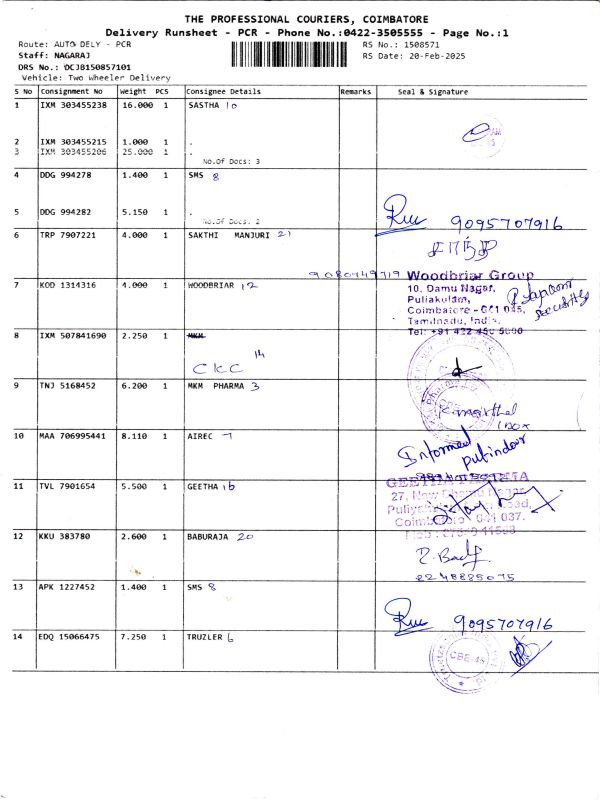 THE PROFESSIONAL COURIERS, COIMBATORE
Delivery Runsheet - PCR - Phone No.:0422-3505555 - Page No.:1
Route: AUTO DELY - PCR
RS No.: 1508571
Staff: NAGARAJ
RS Date: 20-Feb-2025
DRS No.: DCJB150857101
Vehicle: Two Wheeler Delivery
S No Consignment No Weight PCS Consignee Details Remarks Seal & Signature
1 IXM 303455238 16.000 1 SASTHA 10
2 IXM 303455215 1.000 1 .
3 IXM 303455206 25.000 1 .
No.Of Docs: 3
4 DDG 994278 1.400 1 SMS 8
5 DDG 994282 5.150 1 .
No.Of Docs: 2
9095707916
6 TRP 7907221 4.000 1 SAKTHI MANJURI 21
Woodbriar Group
7 KOD 1314316 4.000 1 WOODBRIAR 12
10, Damu Nagar,
Puliakulam,
Coimbatore - 641 045,
Tamilnadu, India.
security
8 IXM 507841690 2.250 1 MKM
CKC 14
9 TNJ 5168452 6.200 1 MKM PHARMA 3
10 MAA 706995441 8.110 1 AIREC 7
Informed
11 TVL 7901654 5.500 1 GEETHA 16
12 KKU 383780 2.600 1 BABURAJA 20
13 APK 1227452 1.400 1 SMS 8
9095707916
14 EDQ 15066475 7.250 1 TRUZLER 6
CBE-45